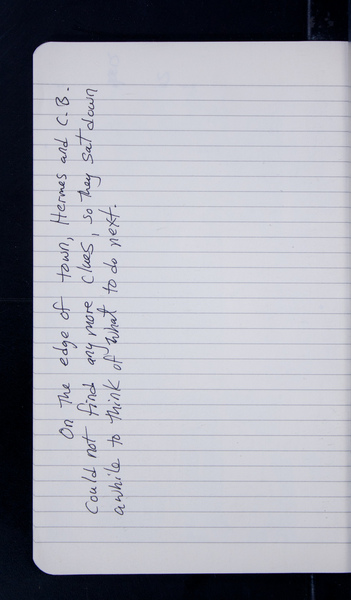 On the edge of town, Hermes and C.B.
Could not find any more clues, so they sat down
awhile to think of what to do next.